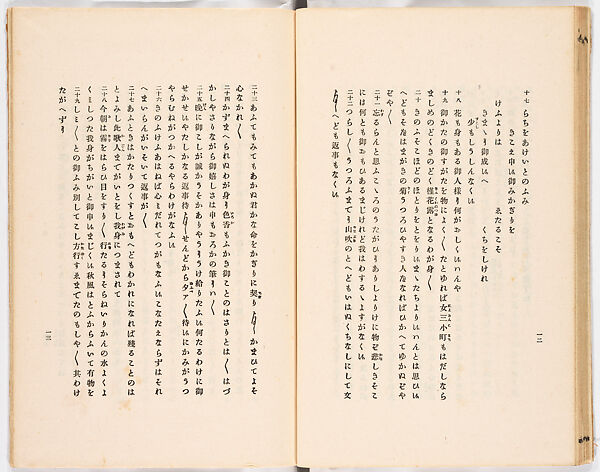 十七 らちをあけいとのふみ
きこえ申い御みかぎりを
けふよりは ゑたるこそ
きまり御成いへ くちをしけれ
少もしうしんなくい
十八 花も身もある御人様り何がおしくいハんや
十九 御かたの御すがたを物によく〳〵たとゆれば女三小町もはだしなら
ましめのどくきのどく槿花露となるわが身〳〵
二十 きのふそこほどのほとりをとをりいまゝたちよりいハんとは思ひい
へどもそ
や〳〵
二十一 忘るらんと思ふこゝろのうたがひりありしよりけに物ぞ悲しきそこ
には何とも御おもひあるまじけれど我はわするゝよすがなくい
二十二 つらし〳〵うつろふまでり山吹のとへどもいはぬくちなしにして文
へども返事もなくい
一二
二十三 あふてもみてもあかぬ君かな命をかぎりに契りかまひてよそ
心なかれ〳〵
二十四 かずまへられぬわが身り色香もふかき御ことのはさりとは〳〵はづ
かしやさりながら御嬉しさは申もおろかの筆りい〳〵
二十五 晩に御こしが誠かうそかありやうりうけ給りたふい何たるわけに御
せかせいやたしかなる返事待〳〵せんどから夕ア〳〵待いにかみがうつ
やらむねがつかへるやらわけがなふい
二十六 きのふけふあはねば心もだれてつがもなふいこなたえならずはそれ
へまいらんがいそいて返事が〳〵
二十七 あふときはかたりつくすとおもへどもわかれになれば残ることのは
とよみし此歌人までがいとをし我身につまされて
二十八 今朝は霧をはらひ目をすり〳〵行たるりそらねいりかんの水よくよ
くもしつた我身がちがいと御申いまじくい秋風はとふからふいて有物を
二十九 しミ〴〵との御ふみ別してこし方行すゑまでたのもしや〳〵其わけ
たがへずり
一三